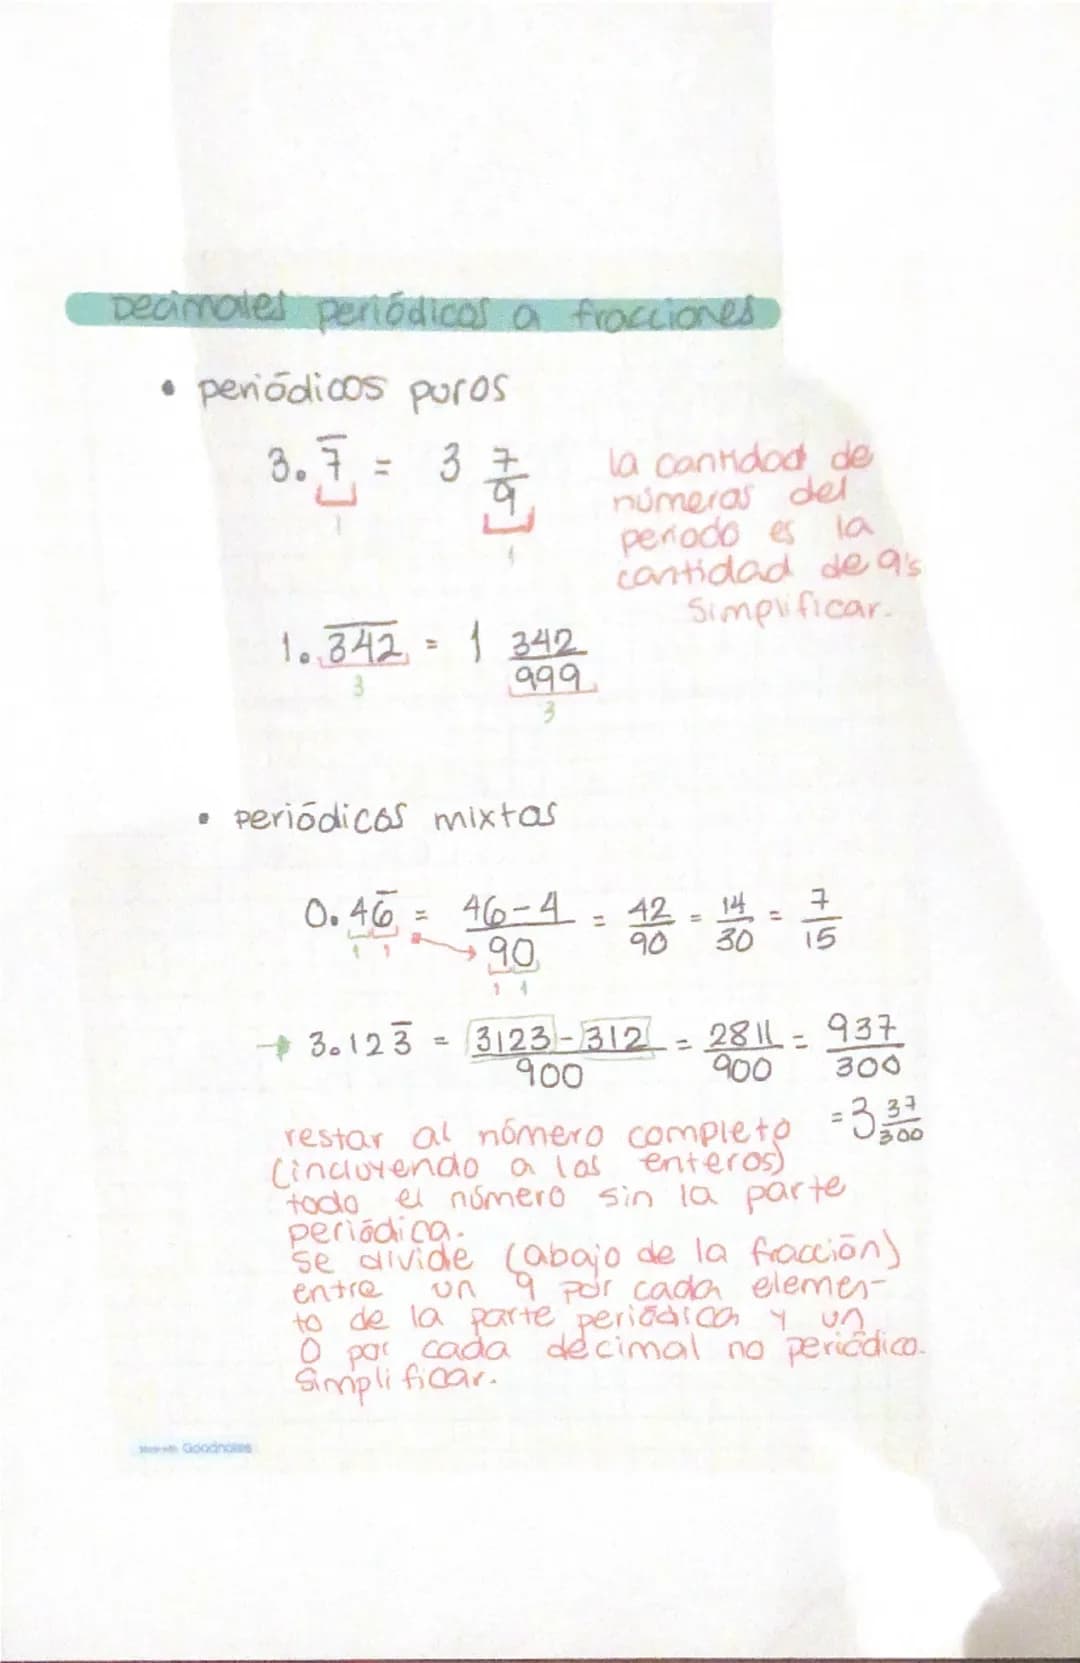 Decimales periódicos a fracciones
• periódicos puros
3.7̅ = 3 7/9
1
1
la cantidad de
números del
periodo es la
cantidad de 9's
Simplificar.
1.3̅4̅2̅ = 1 342/999
3
3
• periódicos mixtos
0.46̅ = 46-4/90 = 42/90 = 14/30 = 7/15
1 1
1 1
→ 3.123̅ = 3123-312/900 = 2811/900 = 937/300
= 3 37/300
restar al número completo
(incluyendo a los enteros)
todo el número sin la parte
periódica.
se divide (abajo de la fracción)
entre un 9 por cada elemen-
to de la parte periódica y un
0 por cada decimal no periódico.
Simplificar.
Made with Goodnotes